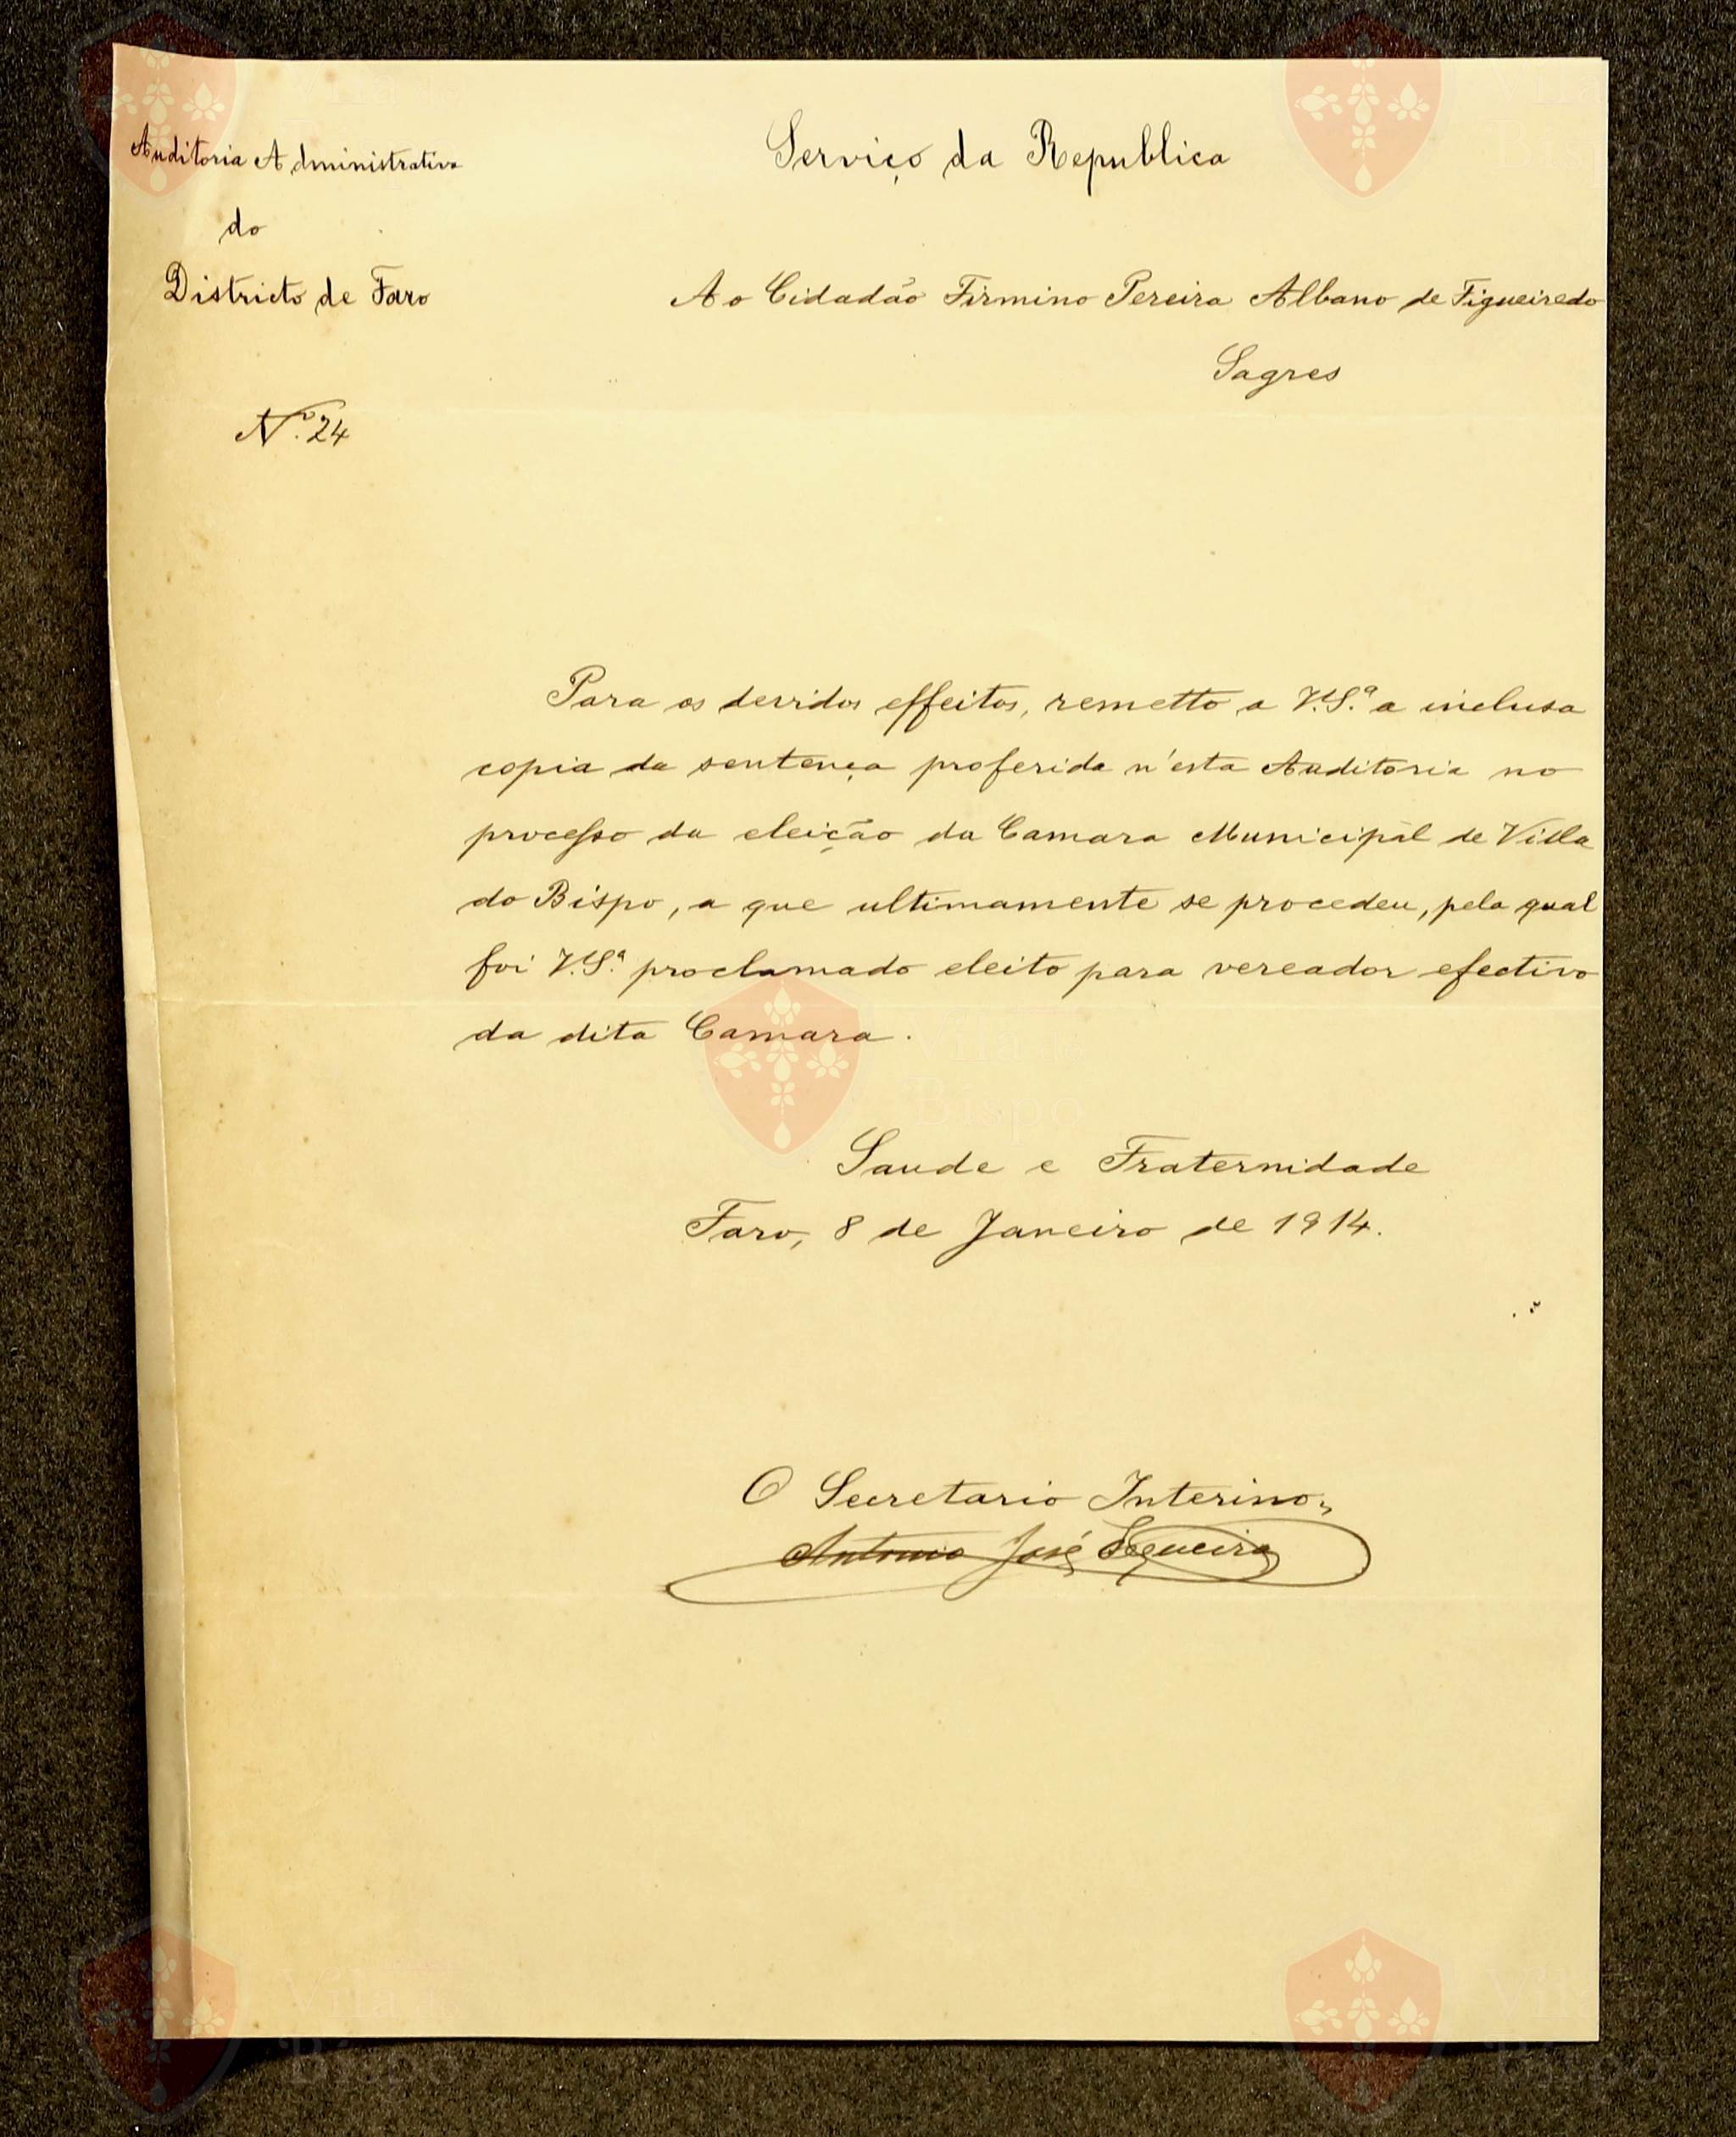 Auditoria Administrativa
do
Districto de Faro
Nº. 24
Serviço da Republica
Ao Cidadão Firmino Pereira Albano de Figueiredo
Sagres
Para os devidos effeitos, remetto a V.S.ª a inclusa
copia da sentença proferida n'esta Auditoria no
processo da eleição da Camara Municipal de Villa
do Bispo, a que ultimamente se procedeu, pela qual
foi V.S.ª proclamado eleito para vereador efectivo
da dita Camara.
Saude e Fraternidade
Faro, 8 de Janeiro de 1914.
O Secretario Interino,
Antonio José Sequeira
Vila do
Bispo